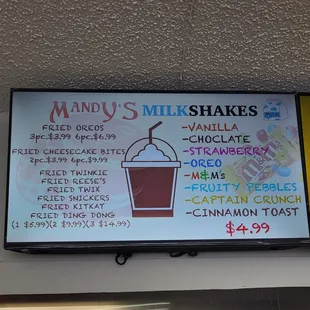 MANDY'S MILKSHAKES
FRIED OREOS
3pc.$3.99 6pc.$6.99
FRIED CHEESECAKE BITES
2pc.$3.99 6pc.$9.99
FRIED TWINKIE
FRIED REESE'S
FRIED TWIX
FRIED SNICKERS
FRIED KITKAT
FRIED DING DONG
(1 $5.99)(2 $9.99)(3 $14.99)
-VANILLA
-CHOCLATE
-STRAWBERRY
-OREO
-M&M's
-FRUITY PEBBLES
-CAPTAIN CRUNCH
-CINNAMON TOAST
$4.99